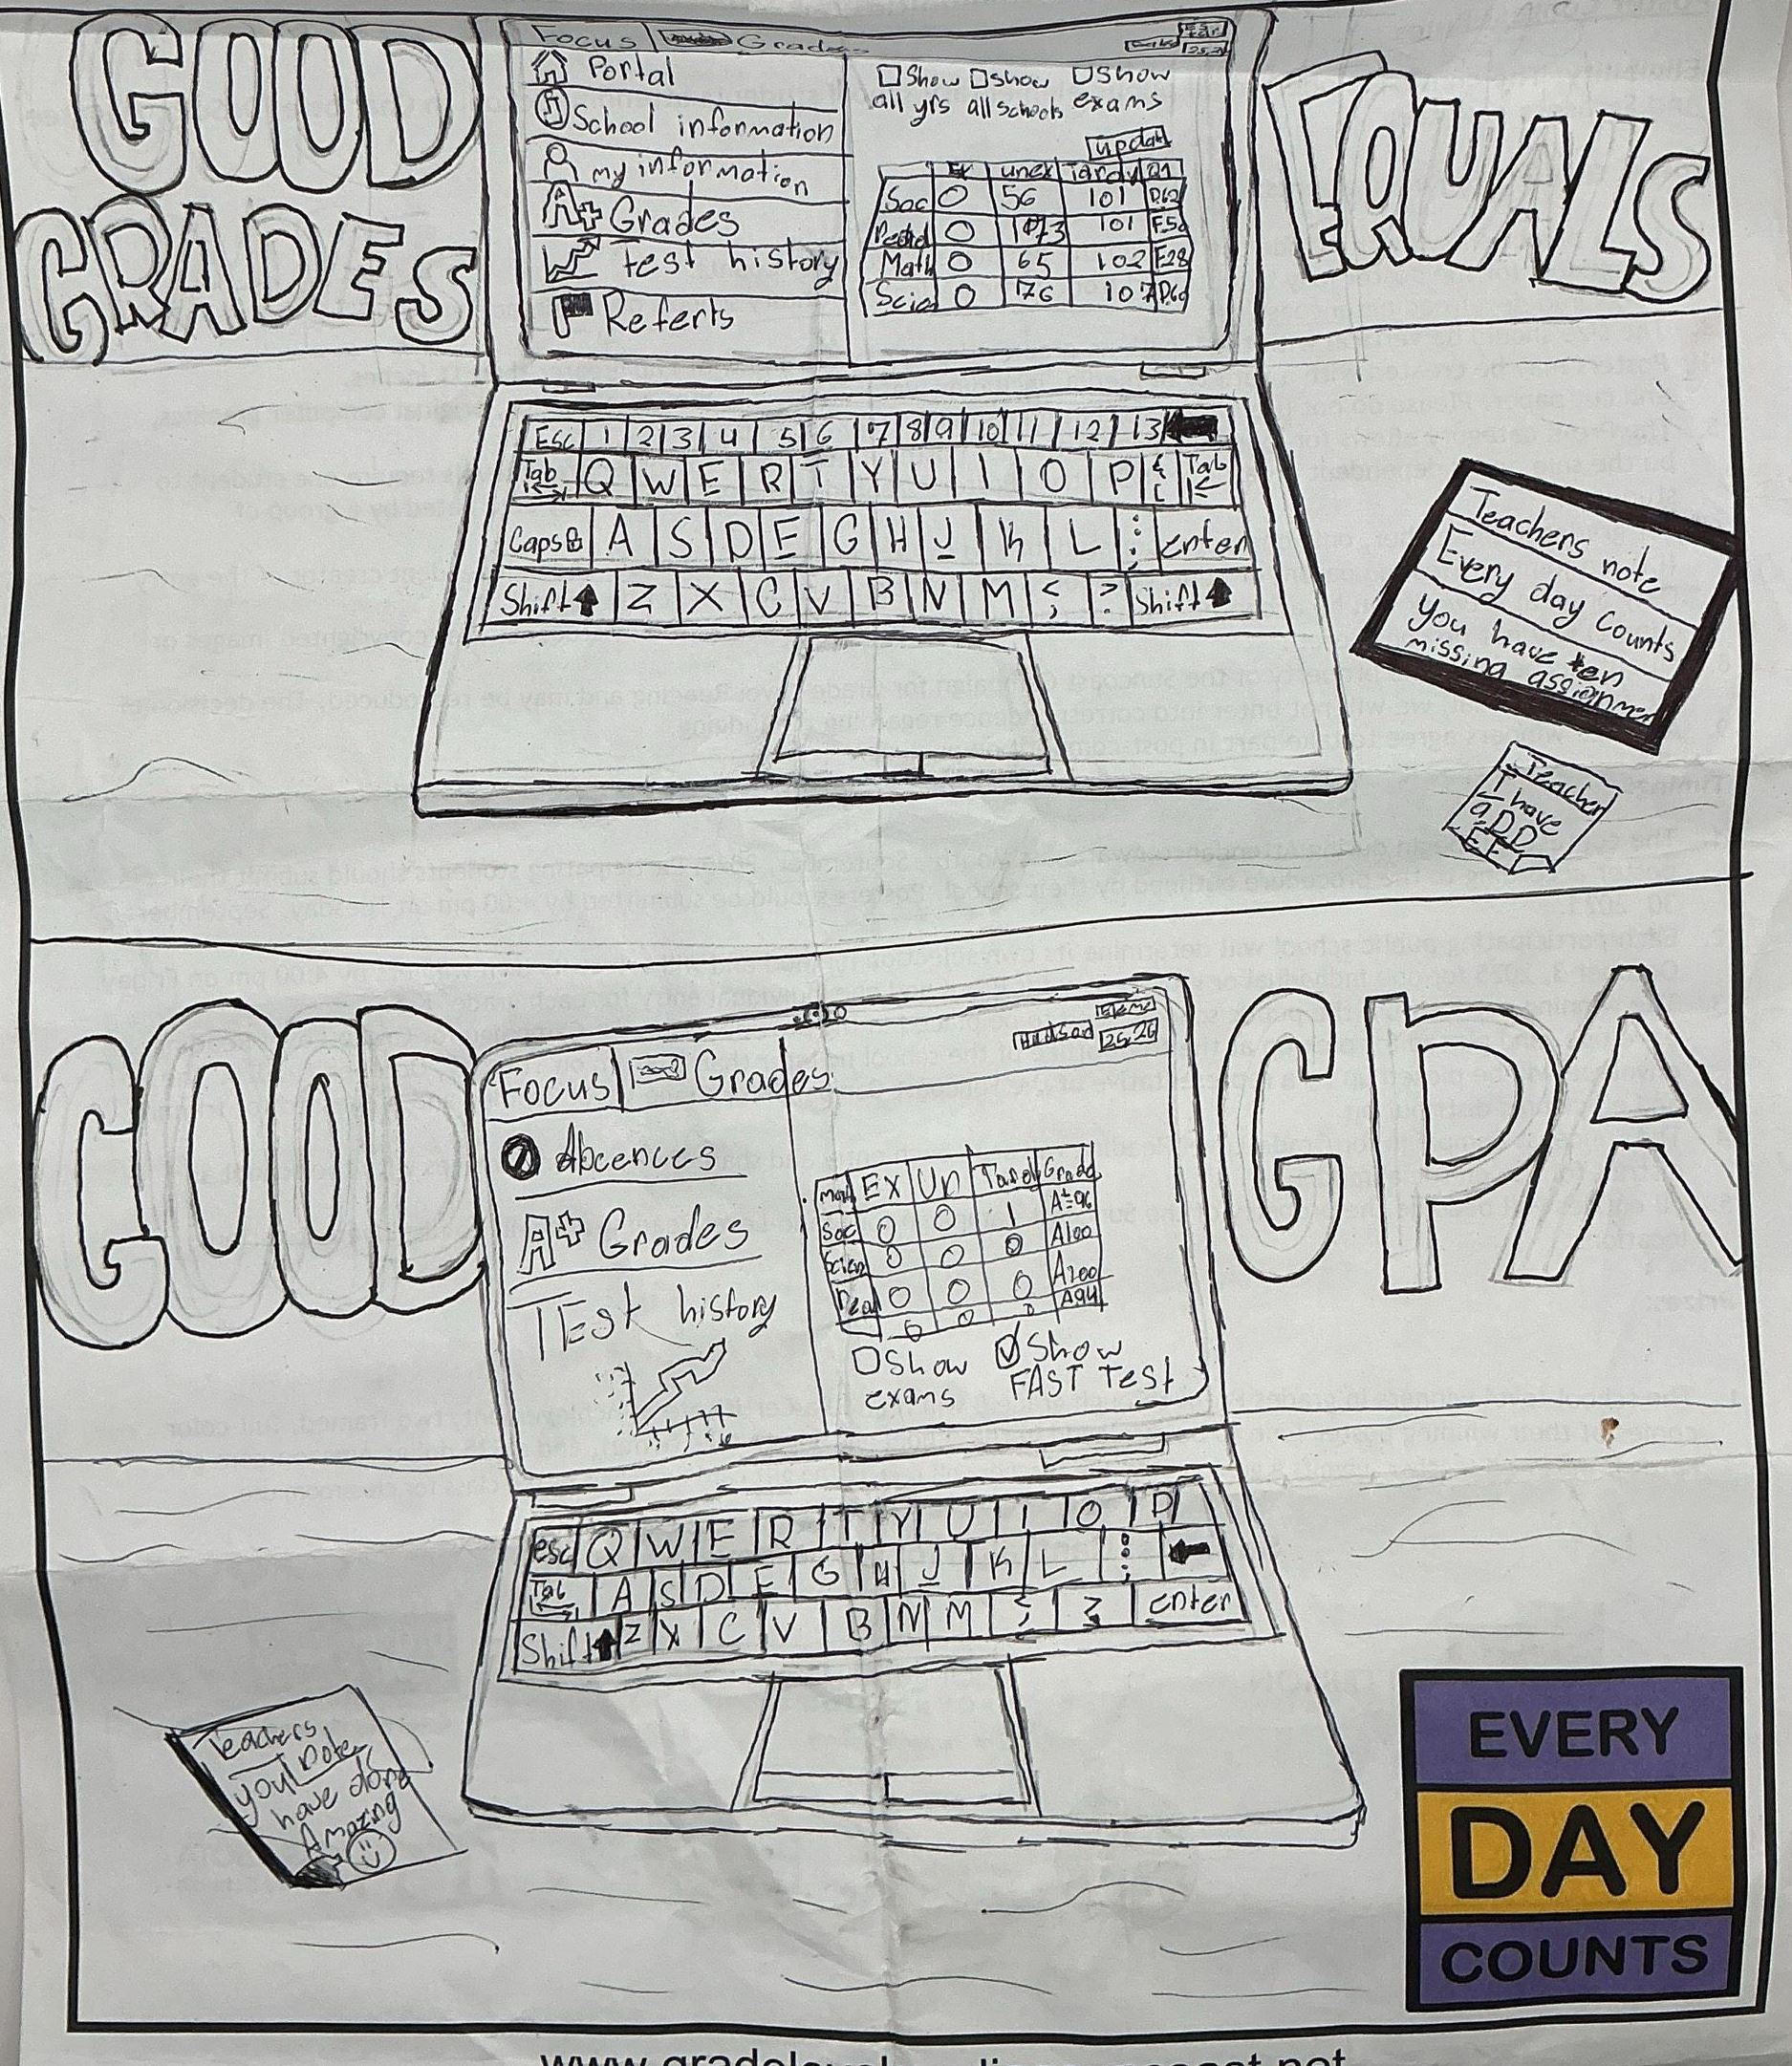 GOOD
GRADES
EQUALS
Focus Grades
Portal
School information
my information
A+ Grades
Test history
Referts
Show all yrs
show all schools
Show exams
updat
Ex unex Tardy Q1
Soc 0 56 101 D.62
0 101
Math 0 65 102 F.28
Scie 0 76 107
Esc 1 2 3 4 5 6 7 8 9 10 11 12 13
Tab Q W E R T Y U I O P { [ Tab
Caps A S D E G H J K L : ; enter
Shift Z X C V B N M ; ? Shift
Teachers note
Every day Counts
you have ten
missing assignmen
Teacher
I have
a D D
E F
GOOD
GPA
Focus Grades
Hudson
25,26
Abcences
A+ Grades
TEst history
Math Ex Un Tardy Grade
Soc 0 0 1 A+=96
Scien 0 0 0 A100
Rea 0 0 0 A100
0 0 0 A94
Show exams
Show FAST Test
esc Q W E R T Y U I O P
Tab A S D E G H J K L : ;
Shift Z X C V B N M ; ? enter
Teachers
note
you
have done
Amazing
EVERY
DAY
COUNTS